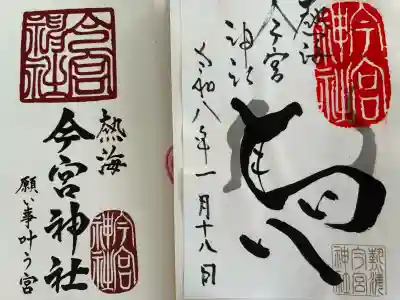 今宮
神社
熱海
今宮神社
願い事叶う宮
今宮
神社
熱海
今宮
神社
令和八年一月十八日
今宮
神社
熱海
今宮
神社